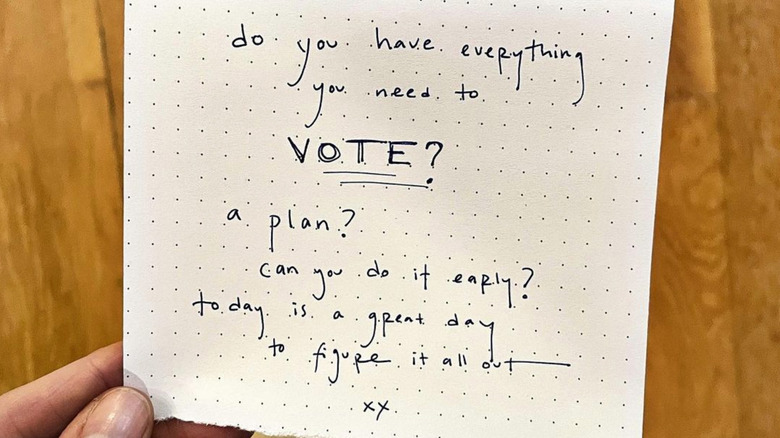 do you have everything
you need to
VOTE?
a plan?
can you do it early?
today is a great day
to figure it all out
xx